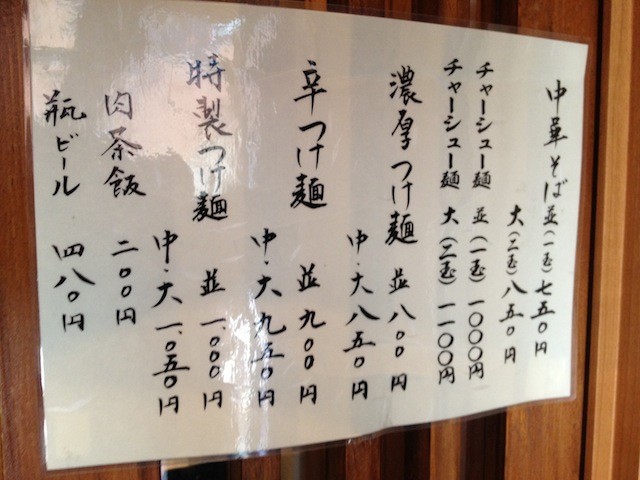 中華そば 並(一玉)七五〇円
大(二玉)八五〇円
チャーシュー麺 並(一玉)一〇〇〇円
チャーシュー麺 大(二玉)一一〇〇円
濃厚つけ麺 並 八〇〇円
中・大 八五〇円
辛つけ麺 並 九〇〇円
中・大 九五〇円
特製つけ麺 並 一、〇〇〇円
中・大 一、〇五〇円
肉茶飯 二〇〇円
瓶ビール 四八〇円